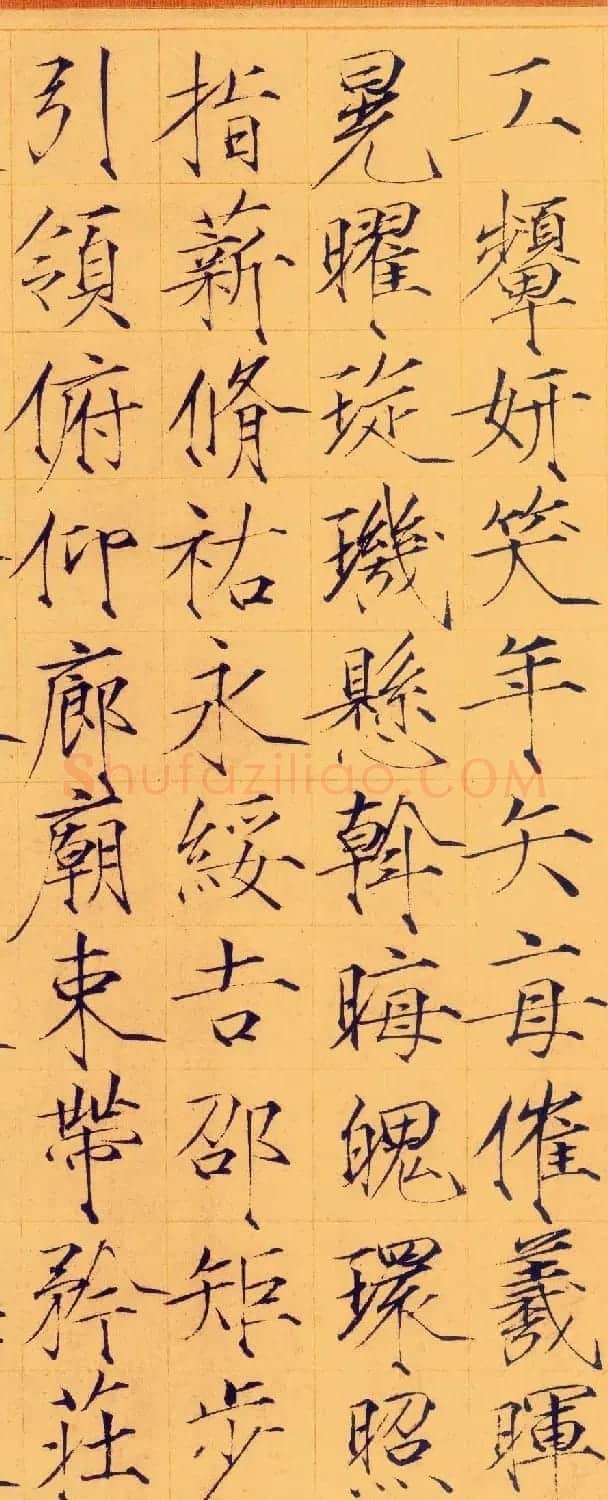 工顰妍笑年矢每催羲暉
晃曜琁璣懸斡晦魄環照
指薪脩祐永綏吉邵矩步
引領俯仰廊廟束帶矜莊
Shufaziliao.COM